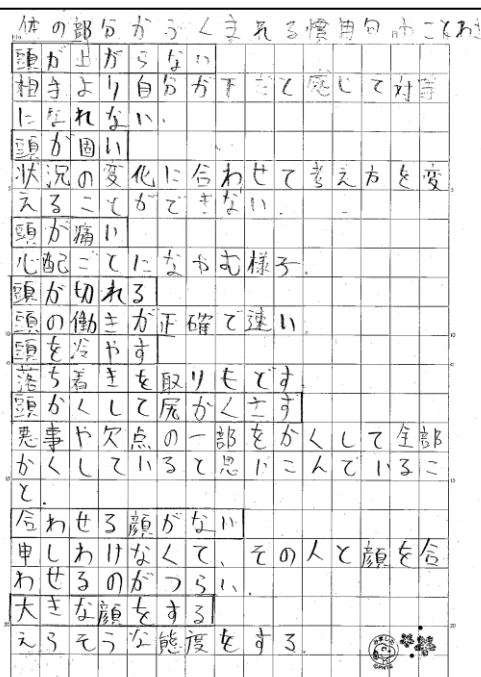 体の部分がふくまれる慣用句やことわざ
頭が上がらない
相手より自分が下だと感じて対等
になれない。
頭が固い
状況の変化に合わせて考え方を変
えることができない。
頭が痛い
心配ごとになやむ様子。
頭が切れる
頭の働きが正確で速い
頭を冷やす
落ち着きを取りもどす
頭かくして尻かくさず
悪事や欠点の一部をかくして全部
かくしていると思いこんでいるこ
と。
合わせる顔がない
申しわけなくて、その人と顔を合
わせるのがつらい。
大きな顔をする
えらそうな態度をする。